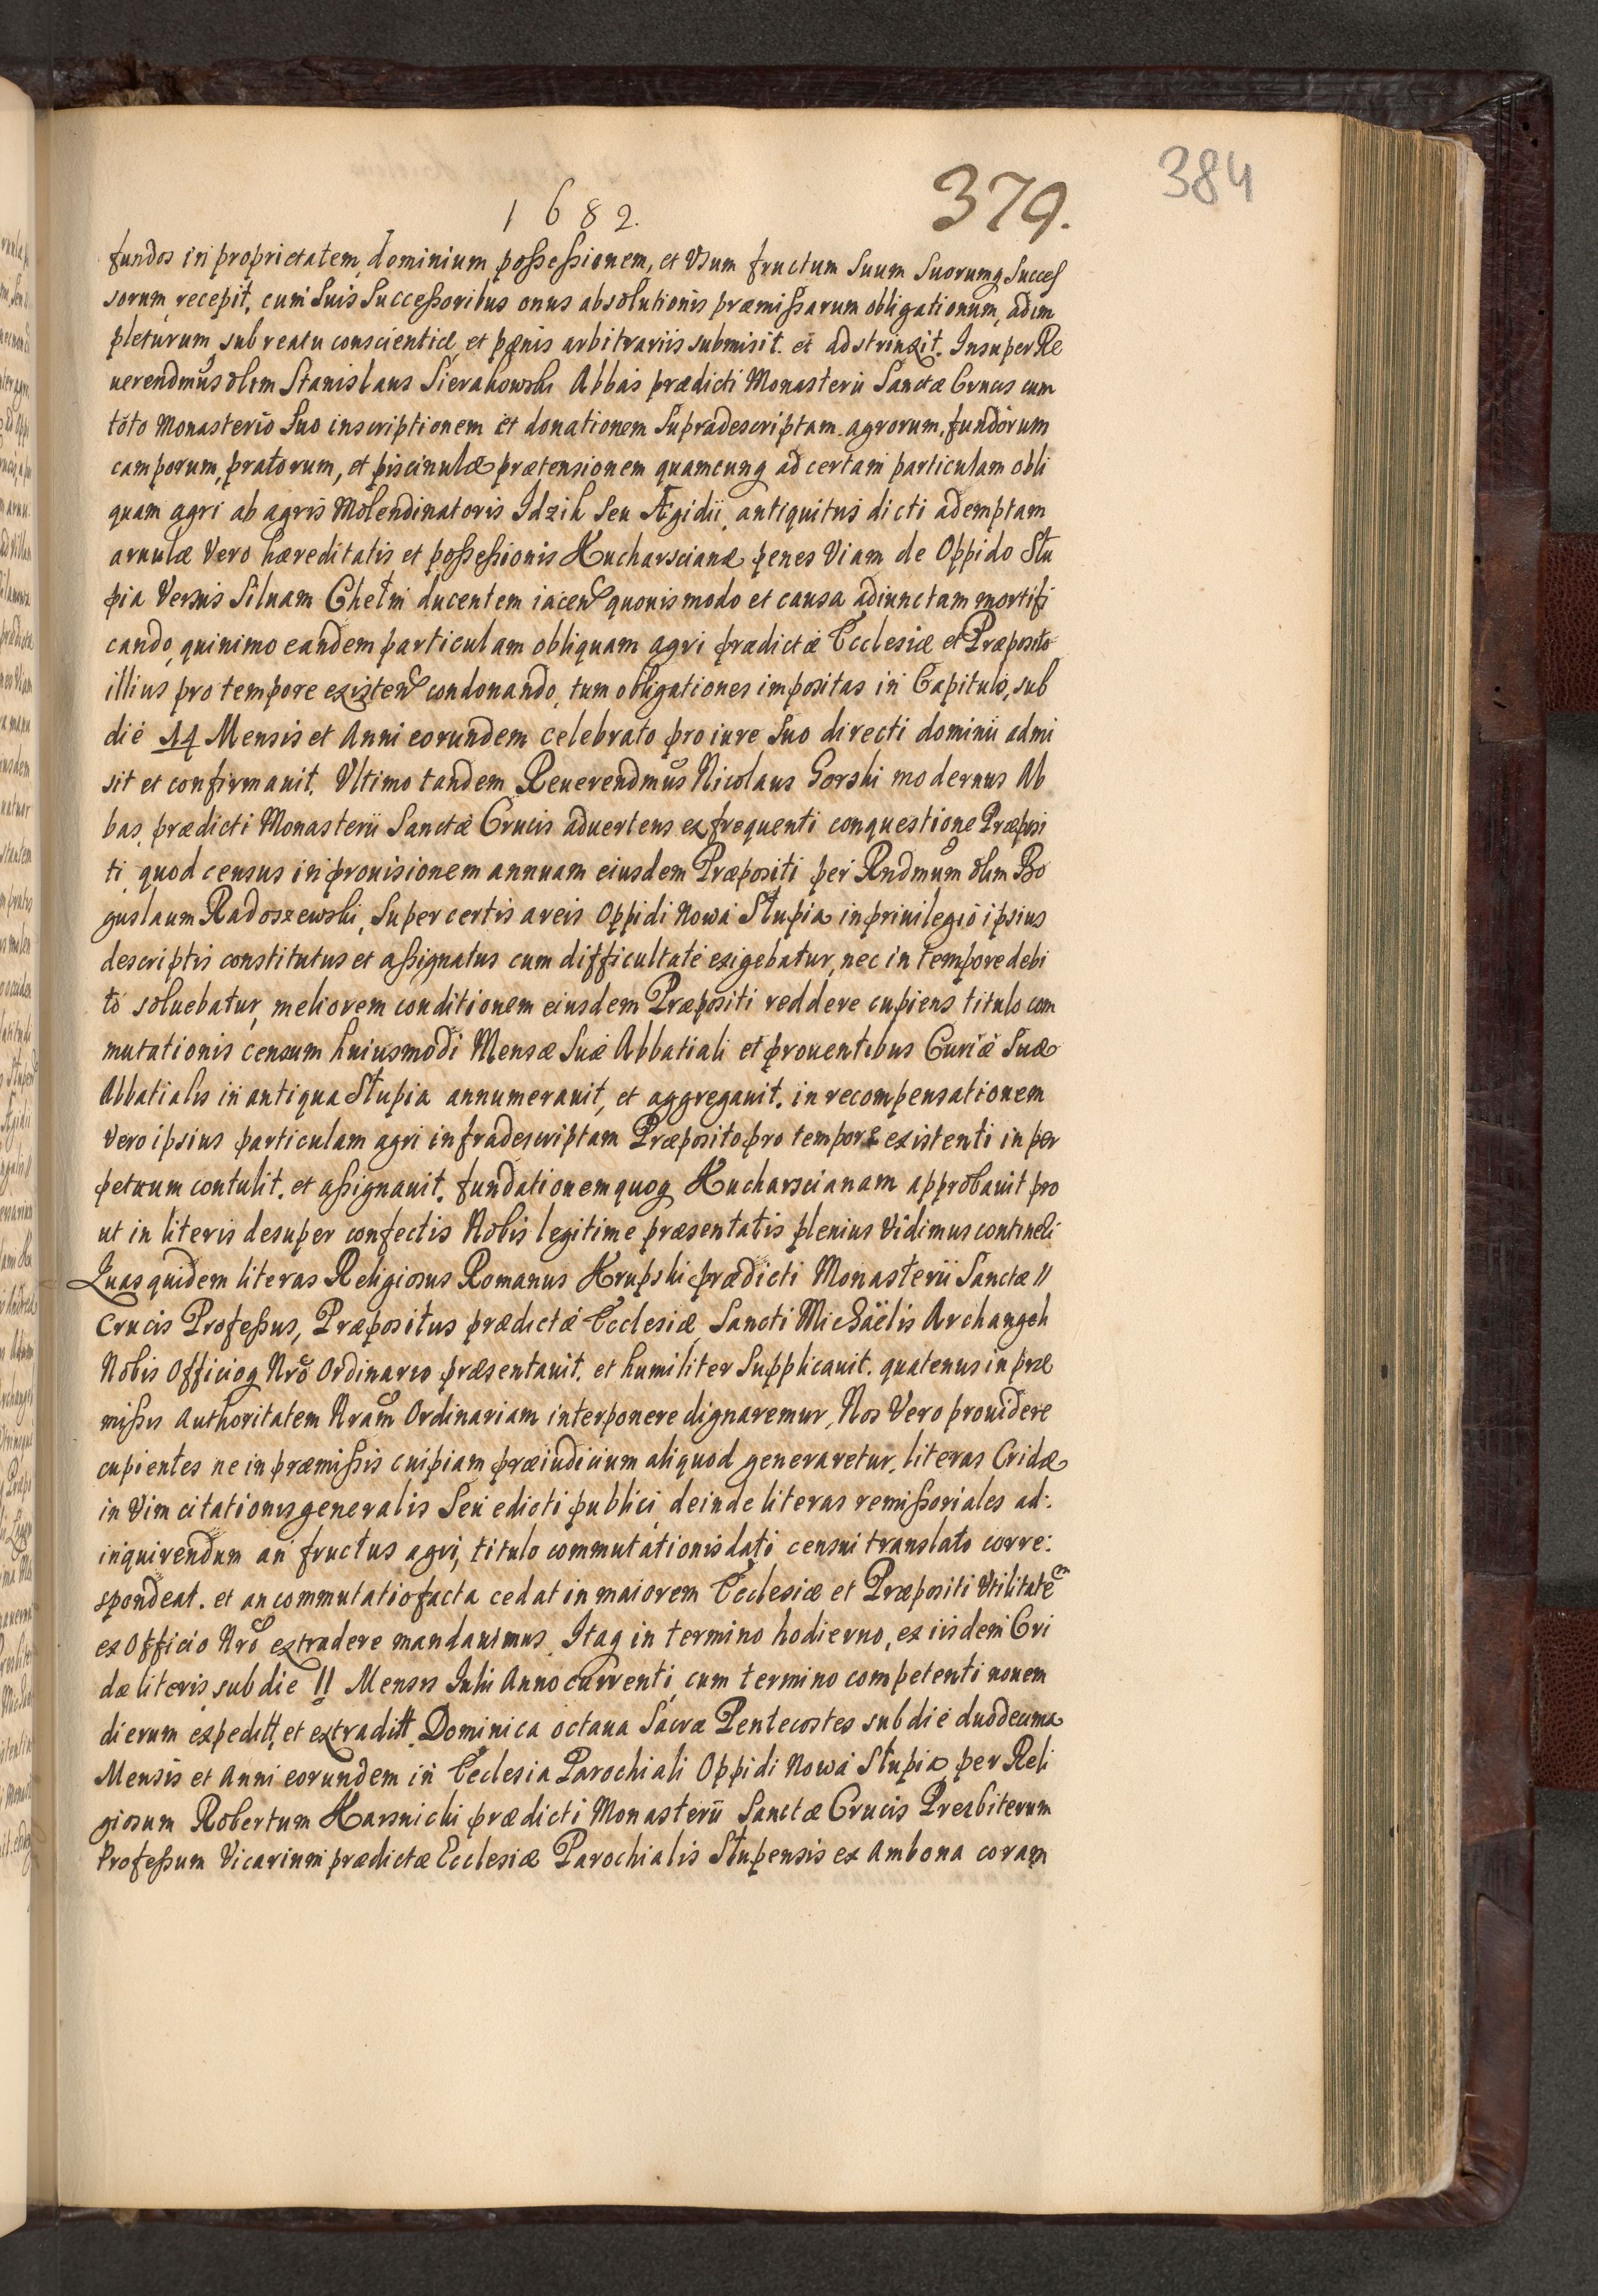 384
1682.
379.
fundos in proprietatem, dominium possessionem, et Vsum fructum Suum Suorumq Succes
sorum, recepit, cum Suis Successoribus onus absolutionis præmissarum obligationum, adim
pleturum sub reatu conscientiæ, et pænis arbitrariis submisit. et adstrinxit. Insuper Re
uerendmus olim Stanislaus Sierakowski Abbas prædicti Monasterii Sanctæ Crucis cum
toto Monasterio Suo inscriptionem et donationem Supradescriptam agrorum, fundorum
camporum, pratorum, et piscinulæ prætensionem quamcunq ad certam particulam obli
quam agri ab agris Molendinatoris Idzik Seu Ægidii, antiquitus dicti ademptam
aruulæ Vero hæreditatis et possessionis Kucharscianæ penes Viam de Oppido Stu
pia Versus Siluam Chełm ducentem iacen quouis modo et causa adiunctam mortifi
cando, quinimo eandem particulam obliquam agri prædictæ Ecclesiæ et Præposito
illius pro tempore existen condonando, tum obligationes impositas in Capitulo, sub
die 14 Mensis et Anni eorundem celebrato pro iure Suo directi dominii admi
sit et confirmauit. Vltimo tandem Reuerendmus Nicolaus Gorski modernus Ab
bas, prædicti Monasterii Sanctæ Crucis aduertens ex frequenti conquestione Præposi
ti, quod census in prouisionem annuam eiusdem Præpositi per Rndmum olim Bo
guslaum Radoszewski, Super certis areis Oppidi Nowa Słupia in priuilegio ipsius
descriptis constitutus et assignatus cum difficultate exigebatur, nec in tempore debi
to soluebatur, meliorem conditionem eiusdem Præpositi reddere cupiens titulo com
mutationis censum huiusmodi Mensæ Suæ Abbatiali et prouentibus Curiæ Suæ
Abbatialis in antiqua Słupia annumerauit, et aggregauit. in recompensationem
Vero ipsius particulam agri infradescriptam Præposito pro tempore existenti in per
petuum contulit. et assignauit. fundationem quoq Kucharscianam approbauit pro
ut in literis desuper confectis Nobis legitime præsentatis plenius Vidimus contineri
Quas quidem literas Religiosus Romanus Krupski prædicti Monasterii Sanctæ //
Crucis Professus, Præpositus prædictæ Ecclesiæ, Sancti Michaëlis Archangeli
Nobis Officioq Nro Ordinario præsentauit. et humiliter Supplicauit. quatenus in præ
missis Authoritatem Nram Ordinariam interponere dignaremur, Nos Vero prouidere
cupientes ne in præmissis cuipiam præiudicium aliquod generaretur, literas Cridæ
in Vim citationis generalis Seu edicti publici, deinde literas remissoriales ad:
inquirendum an fructus agri, titulo commutationis dati censui translato corre:
spondeat. et an commutatio facta cedat in maiorem Ecclesiæ et Præpositi Vtilitatem
ex Officio Nro extradere mandauimus. Itaq in termino hodierno, ex iisdem Cri
dæ literis, sub die 11 Mensis Iulii Anno currenti, cum termino competenti nouem
dierum expeditt, et extraditt. Dominica octaua Sacræ Pentecostes sub die duodecima
Mensis et Anni eorundem in Ecclesia Parochiali Oppidi Nowa Słupia per Reli
giosum Robertum Karsnicki prædicti Monasterii Sanctæ Crucis Presbiterum
Professum Vicarium prædictæ Ecclesiæ Parochialis Słupensis ex Ambona coram